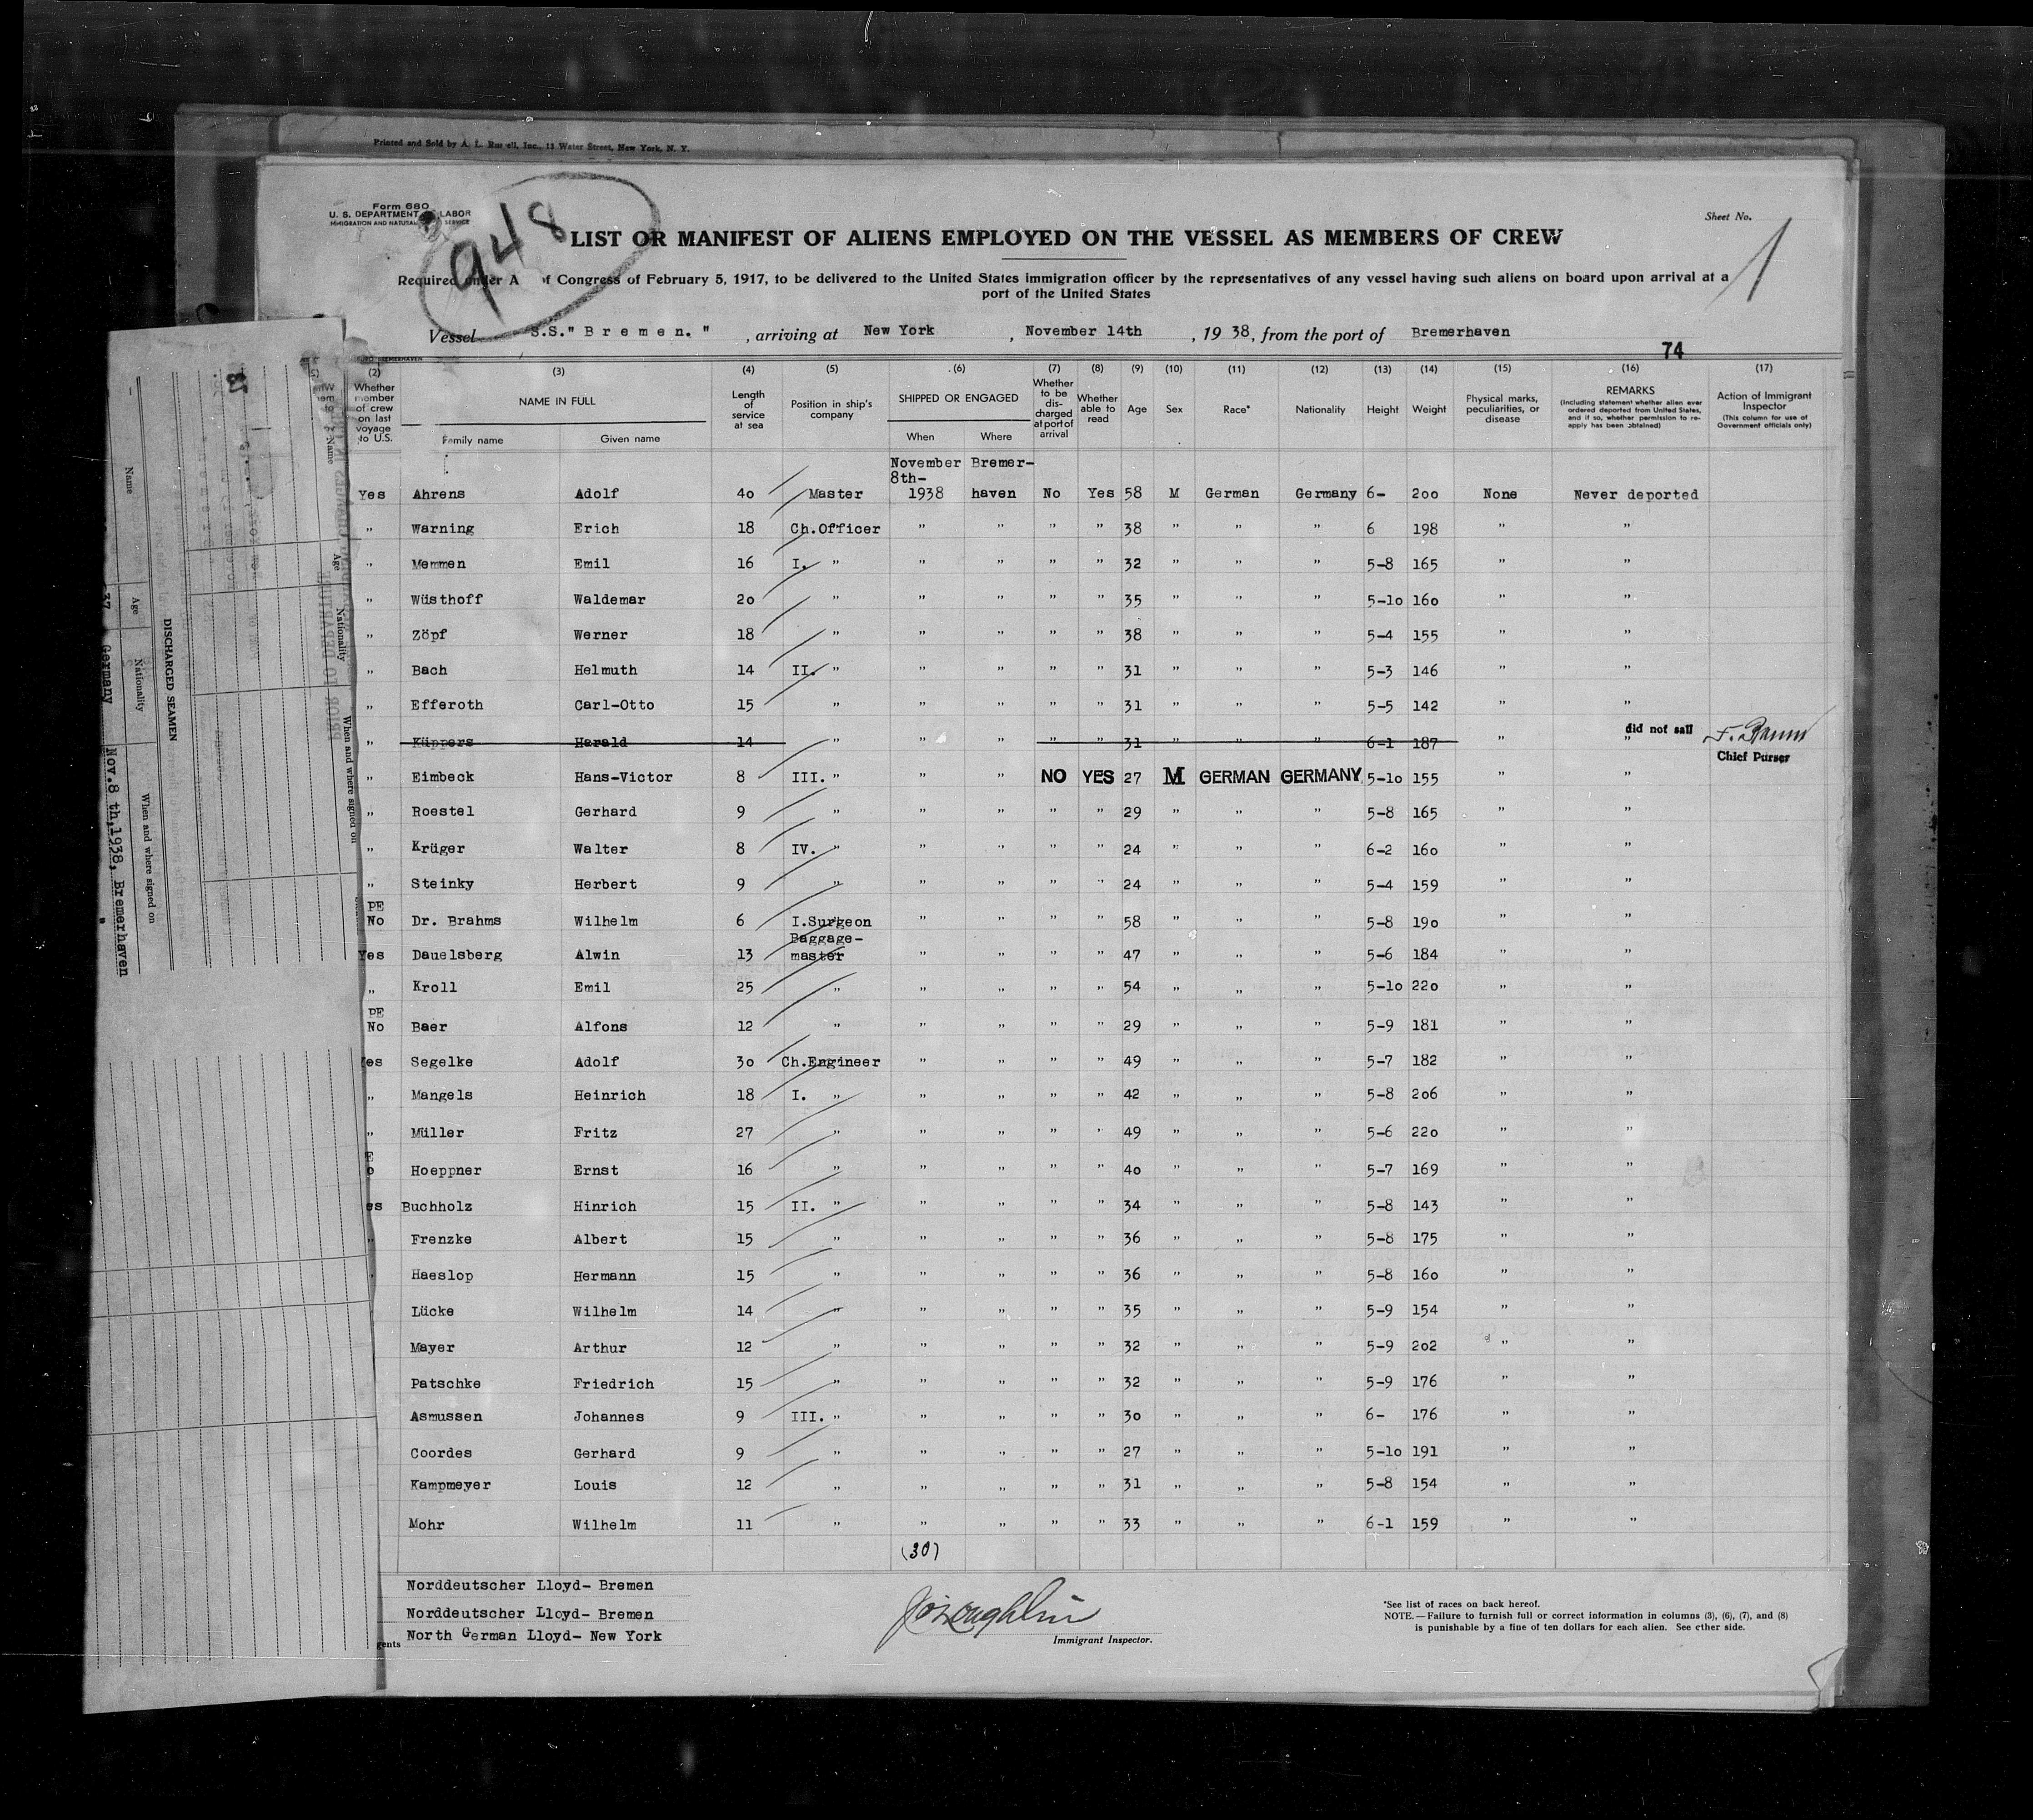 Printed and Sold by A. L. Russell, Inc., 13 Water Street, New York, N. Y.
Form 680
U. S. DEPARTMENT LABOR
IMMIGRATION AND NATURAL SERVICE
948
Sheet No. 1
LIST OR MANIFEST OF ALIENS EMPLOYED ON THE VESSEL AS MEMBERS OF CREW
Required under A of Congress of February 5, 1917, to be delivered to the United States immigration officer by the representatives of any vessel having such aliens on board upon arrival at a
port of the United States
Vessel S.S." B r e m e n. " , arriving at New York , November 14th , 19 38, from the port of Bremerhaven
74
(2) (3) (4) (5) (6) (7) (8) (9) (10) (11) (12) (13) (14) (15) (16) (17)
Whether member of crew on last voyage to U.S.
NAME IN FULL
Family name Given name
Length of service at sea
Position in ship's company
SHIPPED OR ENGAGED
When Where
Whether to be discharged at port of arrival
Whether able to read
Age
Sex
Race*
Nationality
Height
Weight
Physical marks, peculiarities, or disease
REMARKS
(Including statement whether alien ever ordered deported from United States, and if so, whether permission to reapply has been obtained)
Action of Immigrant Inspector
(This column for use of Government officials only)
November Bremer-
8th-
Yes Ahrens Adolf 4o Master 1938 haven No Yes 58 M German Germany 6- 2oo None Never deported
" Warning Erich 18 Ch.Officer " " " " 38 " " " 6 198 " "
" Memmen Emil 16 I. " " " " " 32 " " " 5-8 165 " "
" Wüsthoff Waldemar 2o " " " " " 35 " " " 5-1o 16o " "
" Zöpf Werner 18 " " " " " 38 " " " 5-4 155 " "
" Bach Helmuth 14 II. " " " " " 31 " " " 5-3 146 " "
" Efferoth Carl-Otto 15 " " " " " 31 " " " 5-5 142 " "
" Küppers Harald 14 " " " " " 31 " " " 6-1 187 " " did not sail
Chief Purser
" Eimbeck Hans-Victor 8 III. " " " NO YES 27 M GERMAN GERMANY 5-1o 155 " "
" Roestel Gerhard 9 " " " " " 29 " " " 5-8 165 " "
" Krüger Walter 8 IV. " " " " " 24 " " " 6-2 16o " "
" Steinky Herbert 9 " " " " " 24 " " " 5-4 159 " "
PE
No Dr. Brahms Wilhelm 6 I.Surgeon " " " " 58 " " " 5-8 19o " "
Baggage-
Yes Dauelsberg Alwin 13 master " " " " 47 " " " 5-6 184 " "
" Kroll Emil 25 " " " " " 54 " " " 5-1o 22o " "
PE
No Baer Alfons 12 " " " " " 29 " " " 5-9 181 " "
es Segelke Adolf 3o Ch.Engineer " " " " 49 " " " 5-7 182 " "
" Mangels Heinrich 18 I. " " " " " 42 " " " 5-8 2o6 " "
" Müller Fritz 27 " " " " " 49 " " " 5-6 22o " "
E
o Hoeppner Ernst 16 " " " " " 4o " " " 5-7 169 " "
es Buchholz Hinrich 15 II. " " " " " 34 " " " 5-8 143 " "
" Frenzke Albert 15 " " " " " 36 " " " 5-8 175 " "
Haeslop Hermann 15 " " " " " 36 " " " 5-8 16o " "
Lücke Wilhelm 14 " " " " " 35 " " " 5-9 154 " "
Mayer Arthur 12 " " " " " 32 " " " 5-9 2o2 " "
Patschke Friedrich 15 " " " " " 32 " " " 5-9 176 " "
Asmussen Johannes 9 III. " " " " " 3o " " " 6- 176 " "
Coordes Gerhard 9 " " " " " 27 " " " 5-1o 191 " "
Kampmeyer Louis 12 " " " " " 31 " " " 5-8 154 " "
Mohr Wilhelm 11 " " " " " 33 " " " 6-1 159 " "
(30)
Norddeutscher Lloyd- Bremen
Norddeutscher Lloyd- Bremen
gents North German Lloyd- New York
Immigrant Inspector.
*See list of races on back hereof.
NOTE.—Failure to furnish full or correct information in columns (3), (6), (7), and (8)
is punishable by a fine of ten dollars for each alien. See other side.
DISCHARGED SEAMEN
Name Age Nationality When and where signed on
37 Germany Nov.8 th,1938, Bremerhaven
"
Name Age Nationality When and where signed on
PRIOR TO DEPARTURE